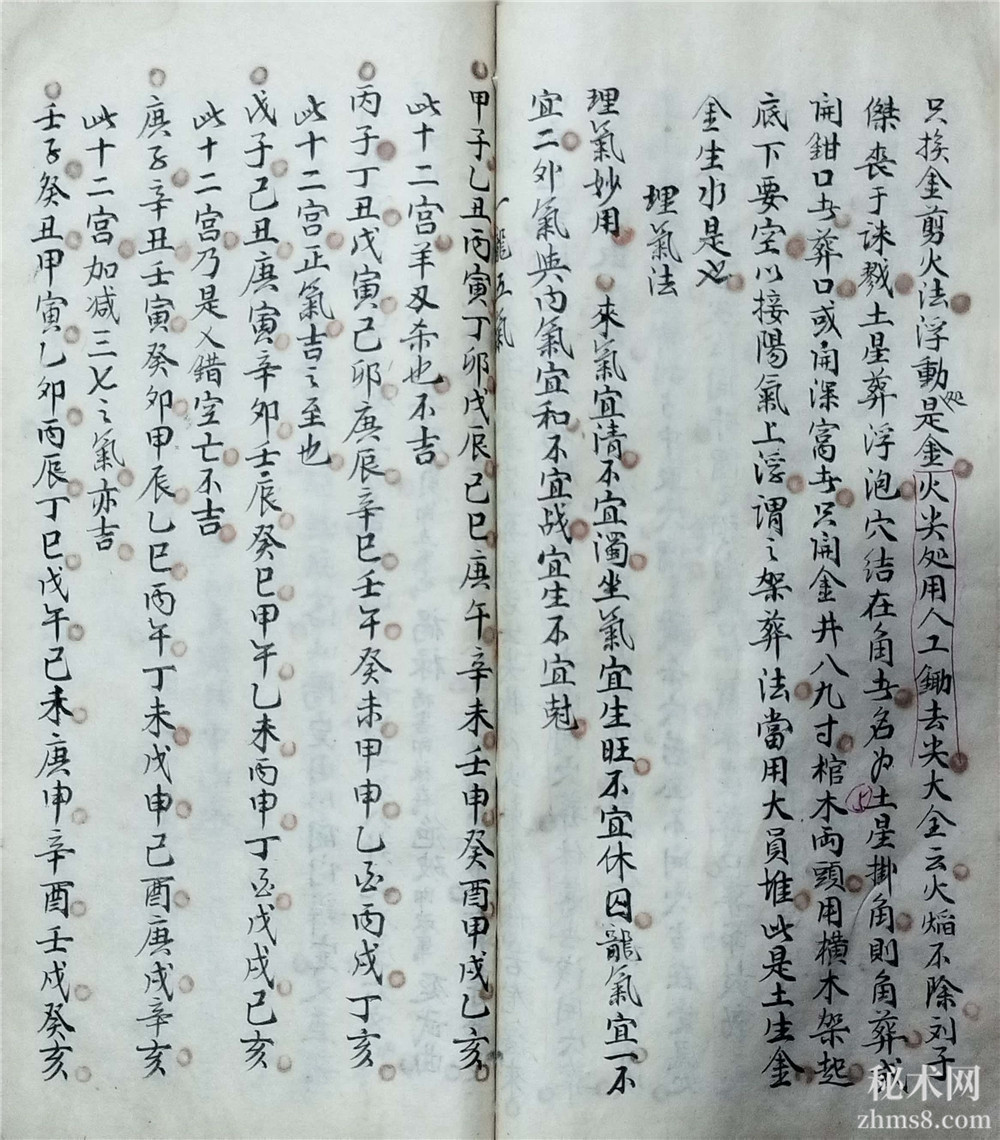 只挨金剪火法浮動处是金火尖处用人工鋤去尖大全云火焰不除刘子
傑丧于誅戮土星葬浮泡穴结在角者名为土星掛角則角葬或
開鉗口者葬口或開深窩者只開金井八九寸棺木兩頭用横木架起
底下要空以接陽氣上浮謂之架葬法當用大員堆此是土生金
金生水是也
理氣法
理氣妙用 來氣宜清不宜濁坐氣宜生旺不宜休囚龍氣宜一不
宜二外氣與内氣宜和不宜战宜生不宜尅
一龍五氣
甲子乙丑丙寅丁卯戊辰己巳庚午辛未壬申癸酉甲戌乙亥
此十二宫羊刃杀也不吉
丙子丁丑戊寅己卯庚辰辛巳壬午癸未甲申乙酉丙戌丁亥
此十二宫正氣吉之至也
戊子己丑庚寅辛卯壬辰癸巳甲午乙未丙申丁酉戊戌己亥
此十二宫乃是乂錯空亡不吉
庚子辛丑壬寅癸卯甲辰乙巳丙午丁未戊申己酉庚戌辛亥
此十二宫加减三七之氣亦吉
壬子癸丑甲寅乙卯丙辰丁巳戊午己未庚申辛酉壬戌癸亥
秘术网
zhms8.com